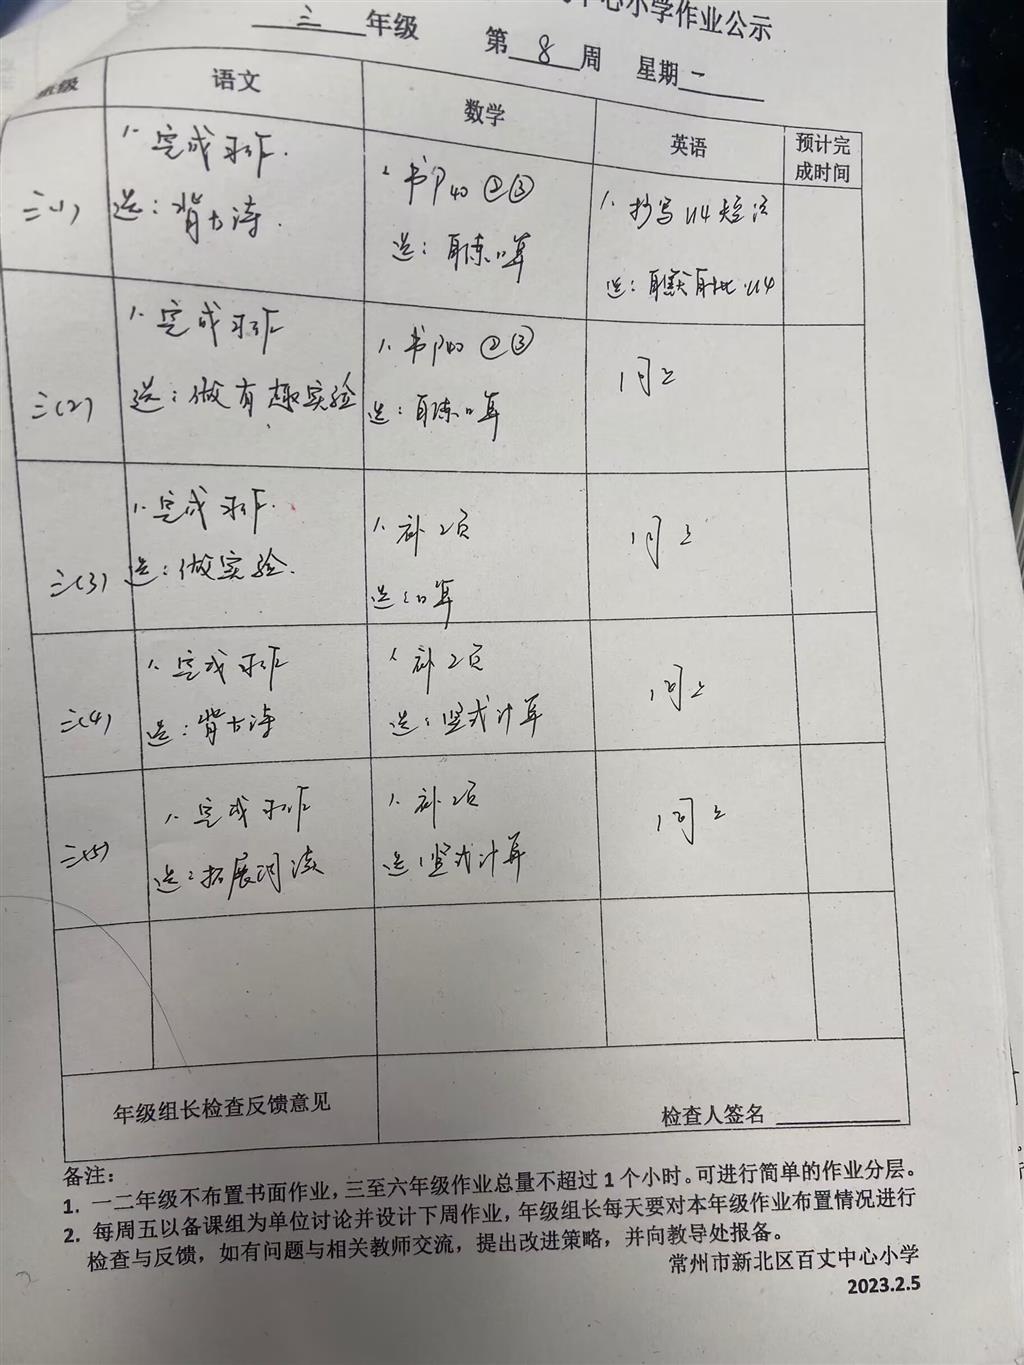 中心小学作业公示
三 年级 第 8 周 星期 一
班级 语文 数学 英语 预计完成时间
三(1)
1. 完成习作.
选：背古诗.
1. 书P40 ②③
选：自练口算
1. 抄写U4短语
选：自默自批U4
三(2)
1. 完成习作
选：做有趣实验
1. 书P40 ②③
选：自练口算
1 同上
三(3)
1. 完成习作.
选：做实验.
1. 补2页
选：口算
1 同上
三(4)
1. 完成习作
选：背古诗
1. 补2页
选：竖式计算
1 同上
三(5)
1. 完成习作
选：拓展阅读
1. 补2页
选：竖式计算
1 同上
年级组长检查反馈意见
检查人签名
备注：
1. 一二年级不布置书面作业，三至六年级作业总量不超过 1 个小时。可进行简单的作业分层。
2. 每周五以备课组为单位讨论并设计下周作业，年级组长每天要对本年级作业布置情况进行
检查与反馈，如有问题与相关教师交流，提出改进策略，并向教导处报备。
常州市新北区百丈中心小学
2023.2.5